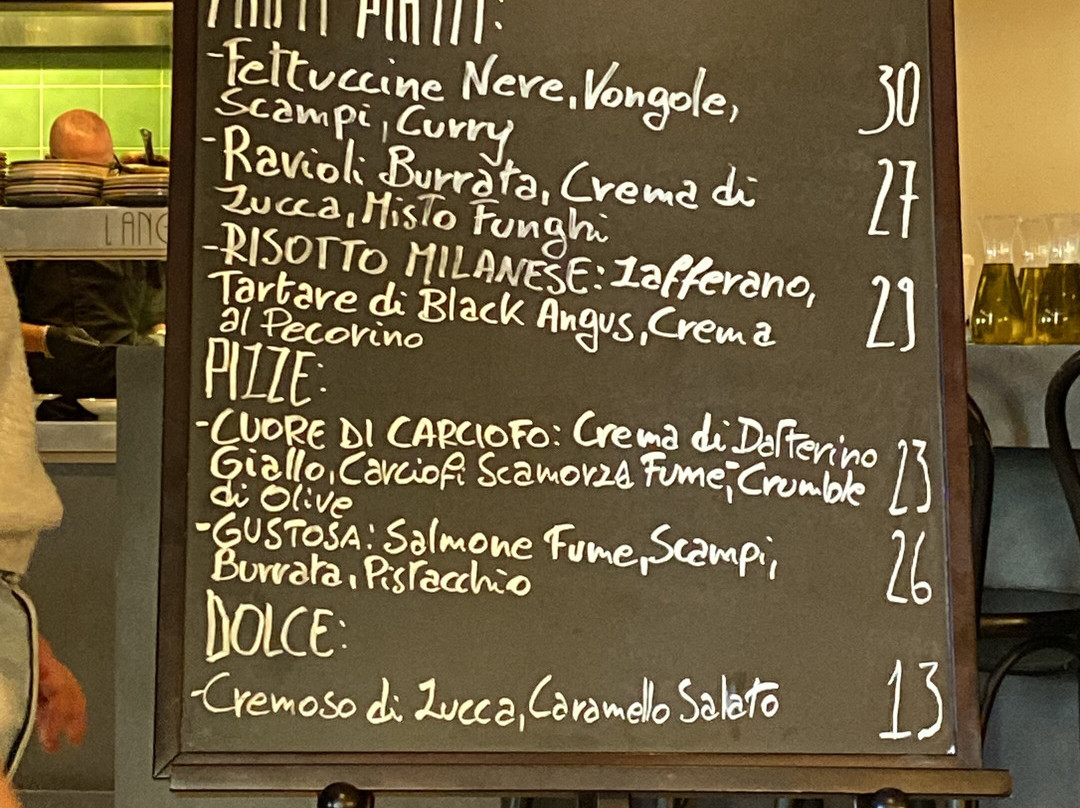 PRIMI PIATTI:
-Fettuccine Nere, Vongole, 30
Scampi, Curry
-Ravioli Burrata, Crema di 27
Zucca, Misto Funghi
-RISOTTO MILANESE: Zafferano,
Tartare di Black Angus, Crema 29
al Pecorino
PIZZE:
-CUORE DI CARCIOFO: Crema di Datterino
Giallo, Carciofi Scamorza Fumè, Crumble 23
di Olive
-GUSTOSA: Salmone Fume, Scampi, 26
Burrata, Pistacchio
DOLCE:
-Cremoso di Zucca, Caramello Salato 13
LANG